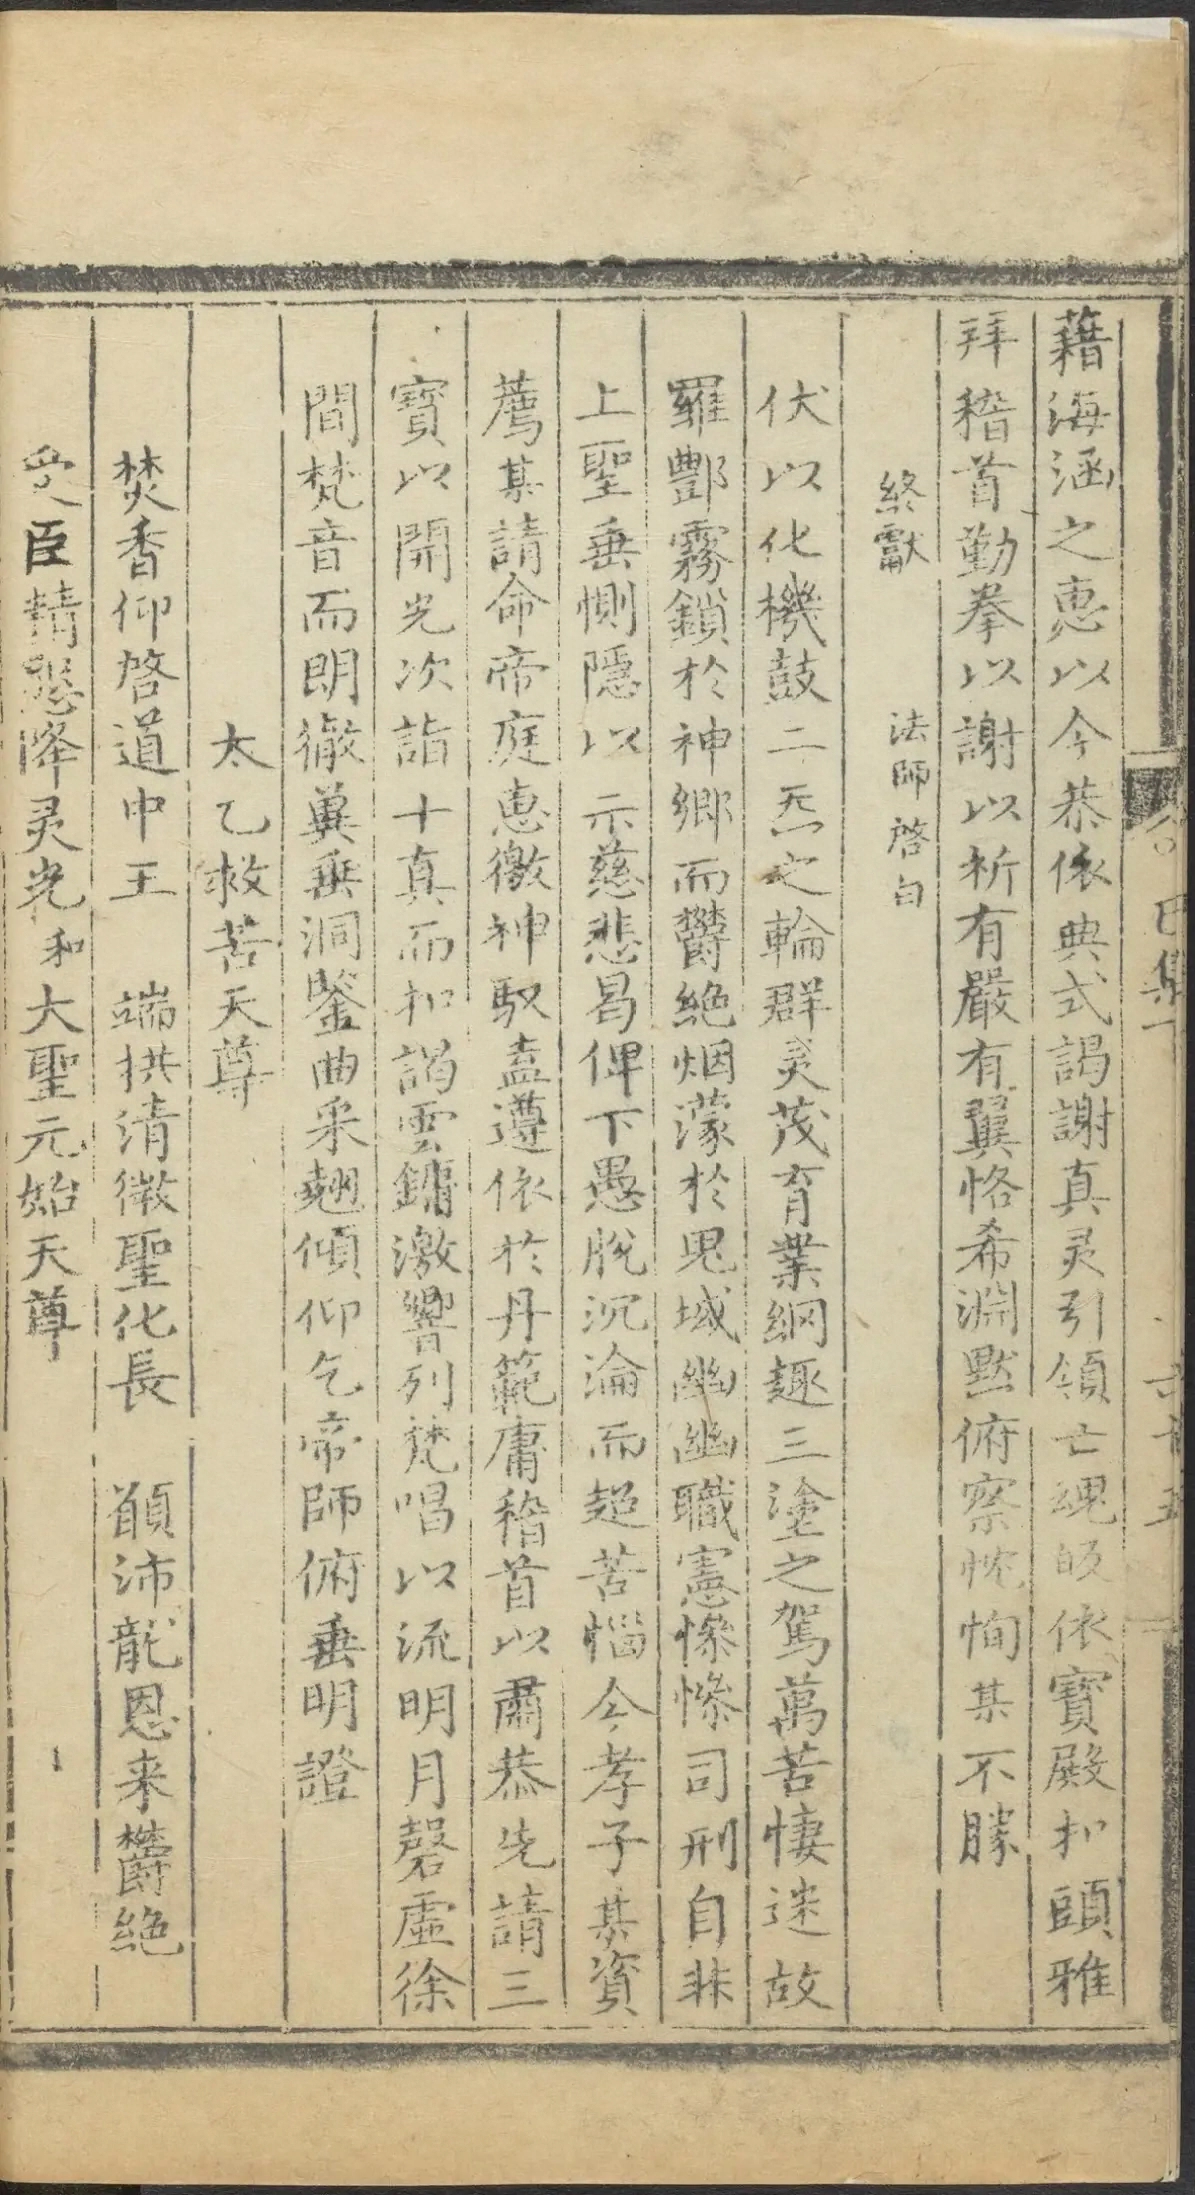 藉海涵之惠以今恭依典式謁謝真灵引領亡魂皈依寶殿扣頭雅
拜稽首勤拳以謝以祈有嚴有翼恪希淵默俯察忱恂某不勝
終獻　法師啓白
伏以化機鼓二炁之輪群灵茂育業網趣三塗之駕萬苦悽迷故
羅酆霧鎖於神鄉而欝絶烟濛於鬼域幽幽職憲慘慘司刑自非
上聖垂惻隱以示慈悲曷俾下愚脫沉淪而超苦惱今孝子某資
薦某請命帝庭惠徼神馭盍遵依於丹範庸稽首以肅恭先請三
寶以開光次詣十真而扣謁雲鏞激響列梵唱以流明月磬虛徐
間梵音而朗徹冀垂洞鑒曲采翹傾仰乞帝師俯垂明證
太乙救苦天尊
焚香仰啓道中王　端拱清微聖化長　願沛龍恩来欝絶
受臣精懇降灵光和大聖元始天尊
巳集下